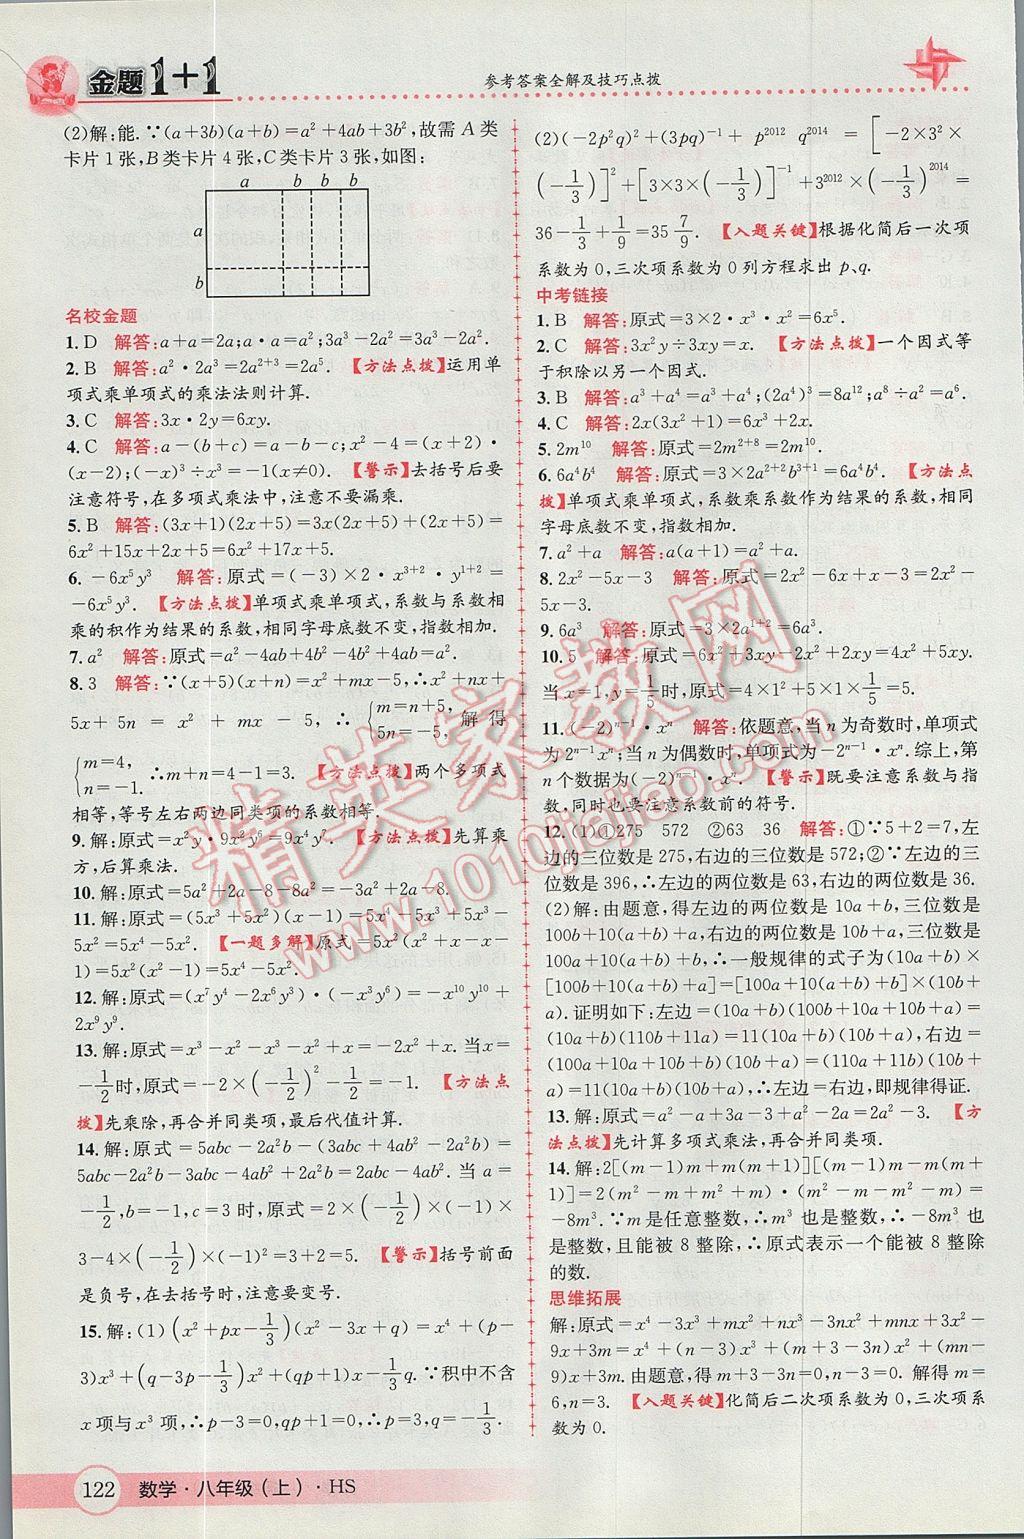 金题1+1
参考答案全解及技巧点拨
(2)解:能.∵(a+3b)(a+b)=a²+4ab+3b²,故需 A 类
卡片 1 张,B类卡片 4 张,C类卡片 3 张,如图:
a b b b
a
b
名校金题
1. D 解答:a+a=2a;a·a=a²;3a³-2a²=3a³-2a².
2. B 解答:a²·2a³=2a²⁺³=2a⁵. 【方法点拨】运用单
项式乘单项式的乘法法则计算.
3. C 解答:3x·2y=6xy.
4. C 解答:a-(b+c)=a-b-c;x²-4=(x+2)·
(x-2);(-x)³÷x³=-1(x≠0). 【警示】去括号后要
注意符号,在多项式乘法中,注意不要漏乘.
5. B 解答:(3x+1)(2x+5)=3x(2x+5)+(2x+5)=
6x²+15x+2x+5=6x²+17x+5.
6. -6x⁵y³ 解答:原式=(-3)×2·x³⁺²·y¹⁺²=
-6x⁵y³. 【方法点拨】单项式乘单项式,系数与系数相
乘的积作为结果的系数,相同字母底数不变,指数相加.
7. a² 解答:原式=a²-4ab+4b²-4b²+4ab=a².
8. 3 解答:∵(x+5)(x+n)=x²+mx-5,∴x²+nx+
5x+5n=x²+mx-5,∴{m=n+5, 5n=-5, 解得
{m=4, n=-1. ∴m+n=4-1=3. 【方法点拨】两个多项式
相等,等号左右两边同类项的系数相等.
9. 解:原式=x²y·9x²y⁶=9x⁴y⁷. 【方法点拨】先算乘
方,后算乘法.
10. 解:原式=5a²+2a-8-8a²=-3a²+2a-8.
11. 解:原式=(5x³+5x²)(x-1)=5x⁴-5x³+5x³-
5x²=5x⁴-5x². 【一题多解】原式=5x²(x²+x-x-
1)=5x²(x²-1)=5x⁴-5x².
12. 解:原式=(x⁷y⁴-2x⁶y³)·(-x³y⁶)=-x¹⁰y¹⁰+
2x⁹y⁹.
13. 解:原式=x³-x²-x³-x²+x=-2x²+x. 当 x=
-1/2时,原式=-2×(-1/2)²-1/2=-1. 【方法点
拨】先乘除,再合并同类项,最后代值计算.
14. 解:原式=5abc-2a²b-(3abc+4ab²-2a²b)=
5abc-2a²b-3abc-4ab²+2a²b=2abc-4ab². 当 a=
-1/2,b=-1,c=3 时,原式=2×(-1/2)×(-1)×
3-4×(-1/2)×(-1)²=3+2=5. 【警示】括号前面
是负号,在计算时,注意要变号.
15. 解:(1)(x²+px-1/3)(x²-3x+q)=x⁴+(p-
3)x³+(q-3p-1/3)x²+(qp+1)x-1/3q. ∵积中不含
x 项与 x³ 项,∴p-3=0,qp+1=0,∴p=3,q=-1/3.
(2)(-2p²q)²+(3pq)⁻¹+p²⁰¹² q²⁰¹⁴=[-2×3²×
(-1/3)]²+[3×3×(-1/3)]⁻¹+3²⁰¹²×(-1/3)²⁰¹⁴=
36-1/3+1/9=35 7/9. 【入题关键】根据化简后一次项
系数为 0,三次项系数为 0 列方程求出 p、q.
中考链接
1. B 解答:原式=3×2·x³·x²=6x⁵.
2. C 解答:3x²y÷3xy=x. 【方法点拨】一个因式等
于积除以另一个因式.
3. B 解答:a³+a⁴=a³+a⁴;(2a⁴)³=8a¹²;a⁸÷a²=a⁶.
4. C 解答:2x(3x²+1)=6x³+2x.
5. 2m¹⁰ 解答:原式=2m²⁺⁸=2m¹⁰.
6. 6a⁴b⁴ 解答:原式=3×2a²⁺²b³⁺¹=6a⁴b⁴. 【方法点
拨】单项式乘单项式,系数乘系数作为结果的系数,相同
字母底数不变,指数相加.
7. a²+a 解答:a(a+1)=a²+a.
8. 2x²-5x-3 解答:原式=2x²-6x+x-3=2x²-
5x-3.
9. 6a³ 解答:原式=3×2a¹⁺²=6a³.
10. 5 解答:原式=6x²+3xy-2x²+2xy=4x²+5xy.
当 x=1,y=1/5时,原式=4×1²+5×1×1/5=5.
11. (-2)ⁿ⁻¹·xⁿ 解答:依题意,当 n 为奇数时,单项式
为 2ⁿ⁻¹xⁿ;当 n 为偶数时,单项式为-2ⁿ⁻¹·xⁿ.综上,第
n 个数据为(-2)ⁿ⁻¹·xⁿ. 【警示】既要注意系数与指
数,同时也要注意系数前的符号.
12. (1)①275 572 ②63 36 解答:①∵5+2=7,左
边的三位数是 275,右边的三位数是 572;②∵左边的三
位数是 396,∴左边的两位数是 63,右边的两位数是 36.
(2)解:由题意,得左边的两位数是 10a+b,三位数是
100b+10(a+b)+a,右边的两位数是 10b+a,三位数是
100a+10(a+b)+b,∴一般规律的式子为(10a+b)×
[100b+10(a+b)+a]=[100a+10(a+b)+b]×(10b+
a).证明如下:左边=(10a+b)(100b+10a+10b+a)=
(10a+b)(110b+11a)=11(10a+b)(10b+a),右边=
(100a+10a+10b+b)(10b+a)=(110a+11b)(10b+
a)=11(10a+b)(10b+a),∴左边=右边,即规律得证.
13. 解:原式=a²-a+3a-3-a²+2a=2a²-3. 【方
法点拨】先计算多项式乘法,再合并同类项.
14. 解:2[(m-1)m+m(m+1)][(m-1)m-m(m+
1)]=2(m²-m+m²+m)(m²-m-m²-m)=
-8m³. ∵m 是任意整数,∴m³ 也是整数,∴-8m³ 也
是整数,且能被 8 整除,∴原式表示一个能被 8 整除
的数.
思维拓展
解:原式=x⁴-3x³+mx²+nx³-3nx²+mnx+3x²-
9x+3m=x⁴+(n-3)x³+(m+3-3n)x²+(mn-9)
x+3m.由题意,得 m+3-3n=0,n-3=0. 解得 m=
6,n=3. 【入题关键】化简后二次项系数为 0,三次项系
数为 0.
精英家教网
www.1010jiajiao.com
122 数学·八年级(上)·HS